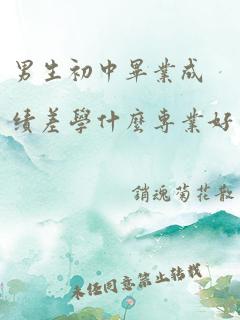 男生初中畢業成
績差學什麼專業好
銷魂菊花散
未经同意禁止转载